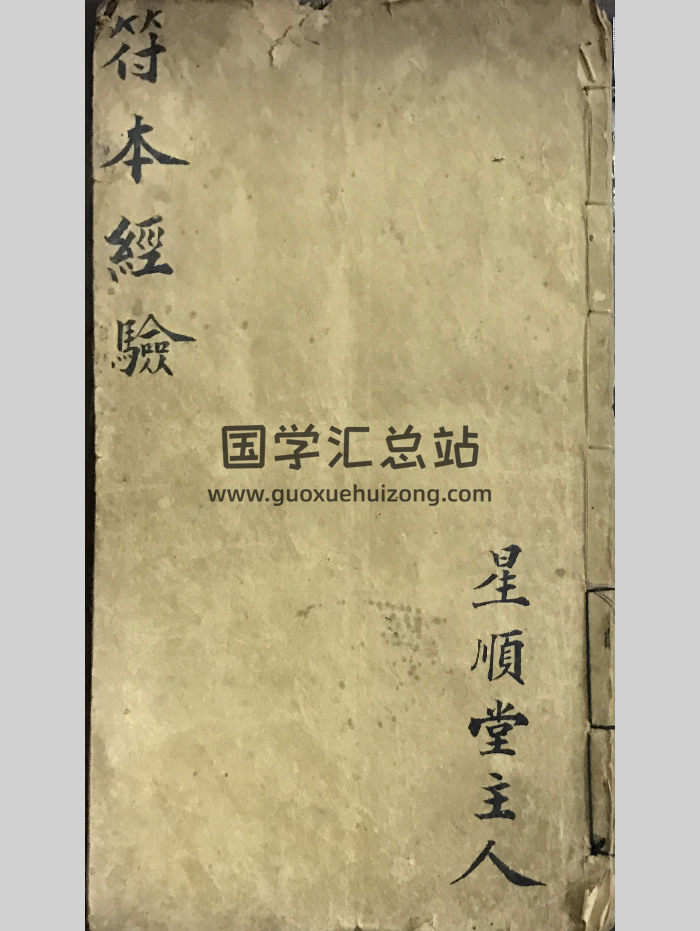 符本經驗
国学汇总站
www.guoxuehuizong.com
星順堂主人